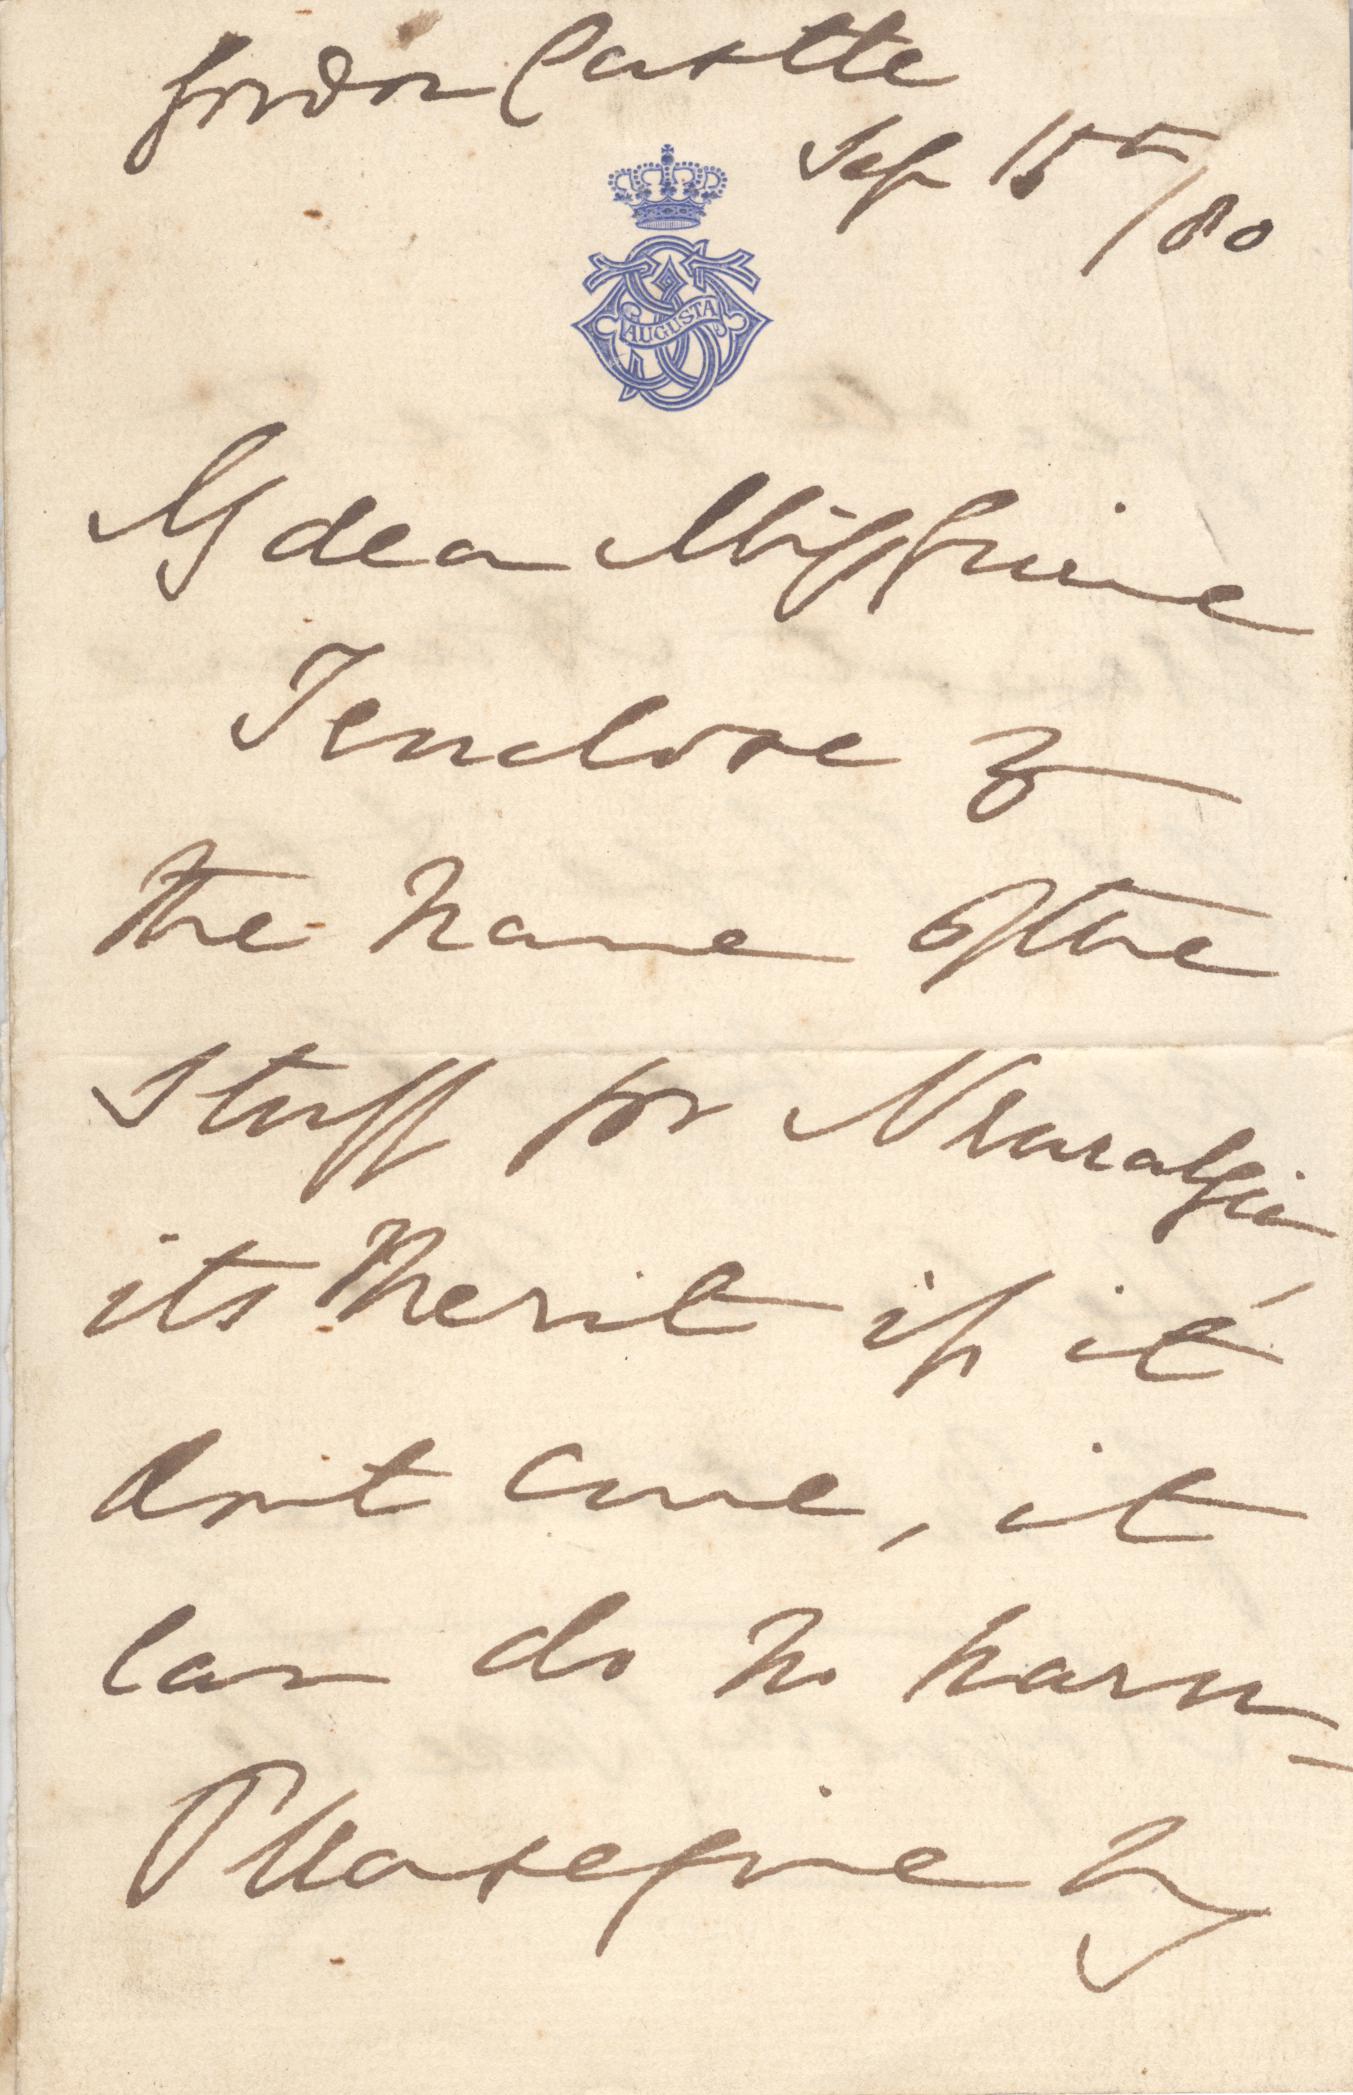 Gordon Castle
Sep 15th/80
AUGUSTA
My dear Miss
I enclose
the name of the
stuff for Neuralgia
its Merit if it
dont cure, it
can do no harm
Please give my